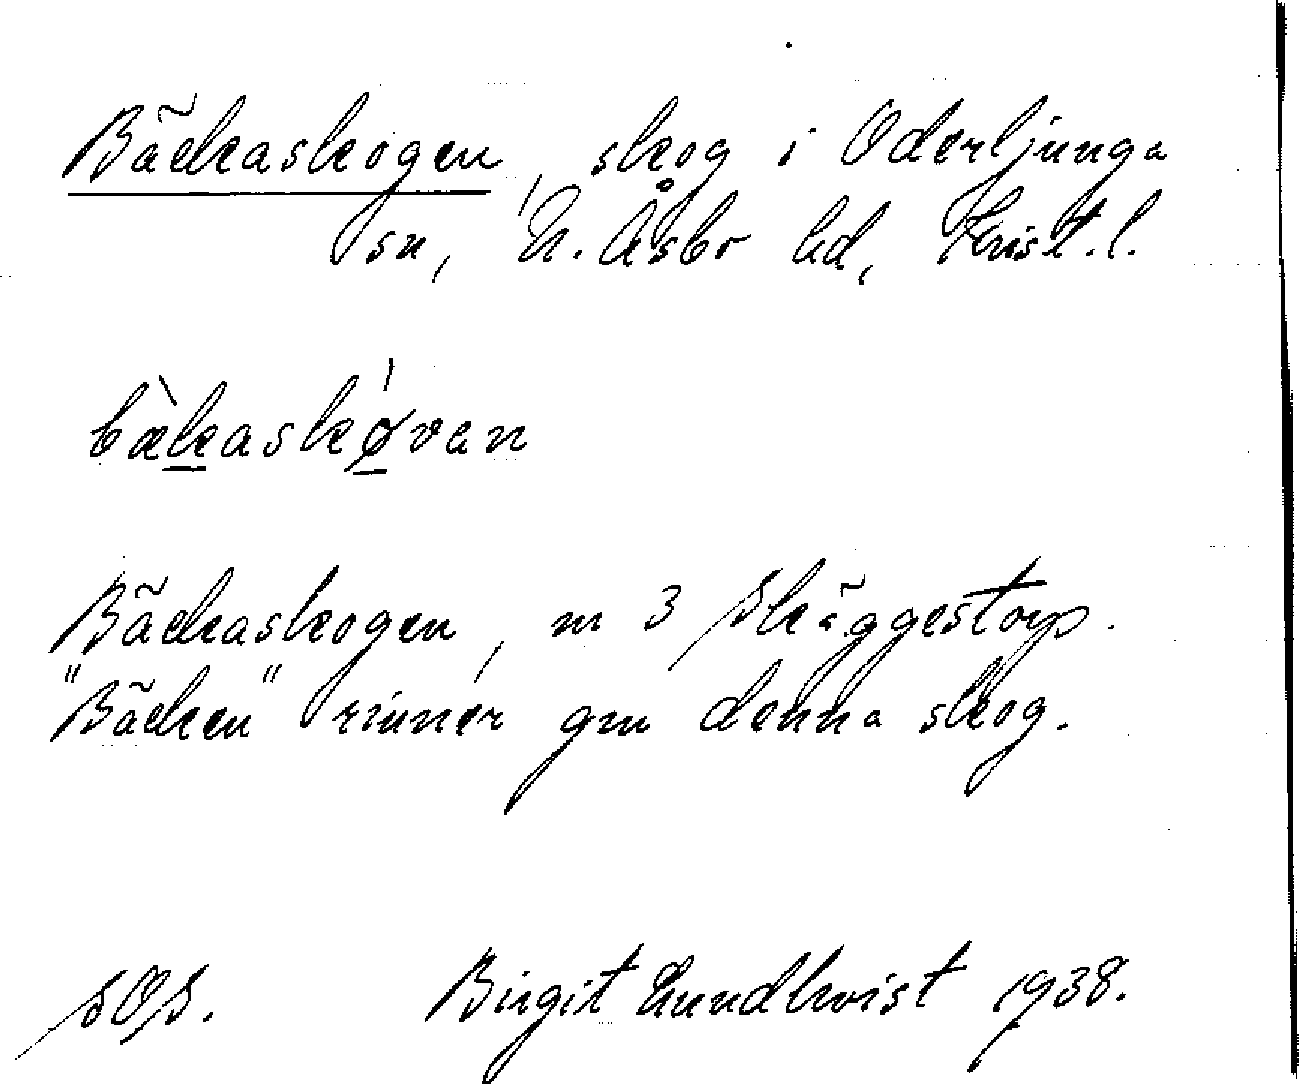 Bäckaskogen, skog i Oderljunga
sn, N. Åsbo hd, Krist. l.
bæ̀kaskǿvan
Bäckaskogen, m 3 Skäggestorp.
"Bäcken" rinner gm denna skog.
SOS. Birgit Lundkvist 1938.